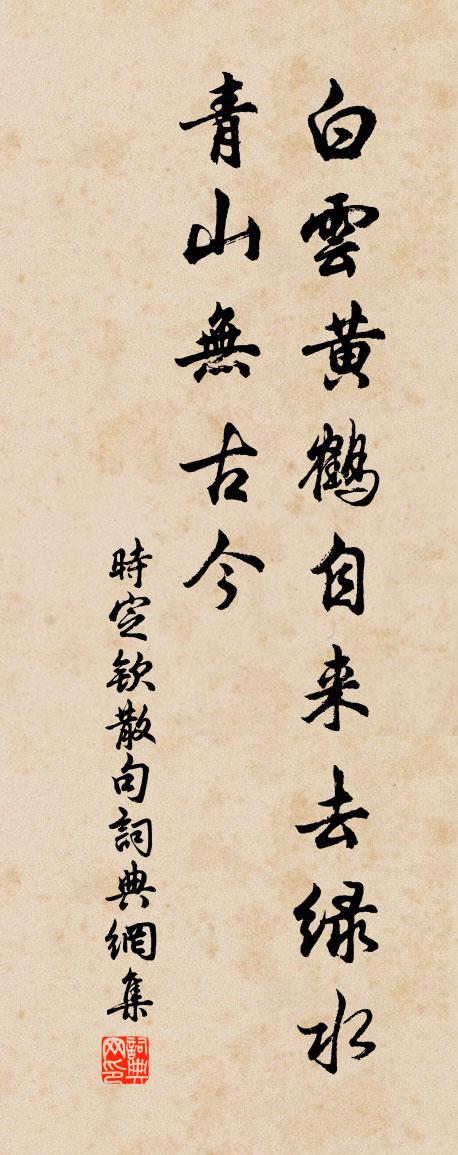 白雲黃鶴自来去綠水
青山無古今
時定欽散句詞典網集
詞典网印